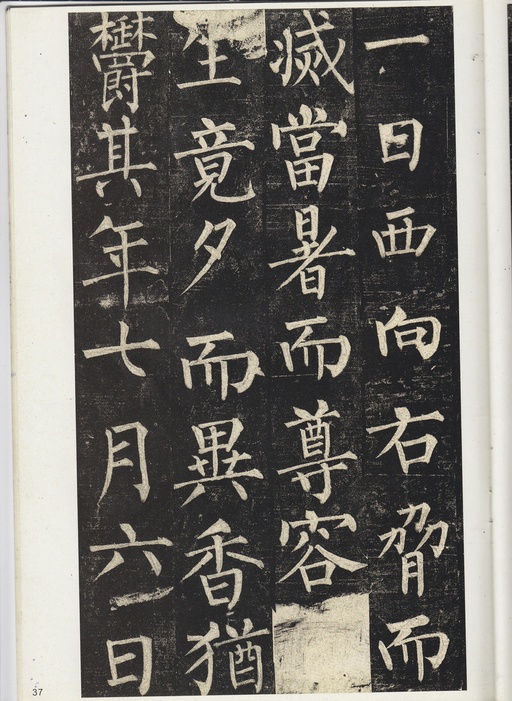 一日西向右脅而
滅當暑而尊容
生竟夕而異香猶
欝其年七月六日
37